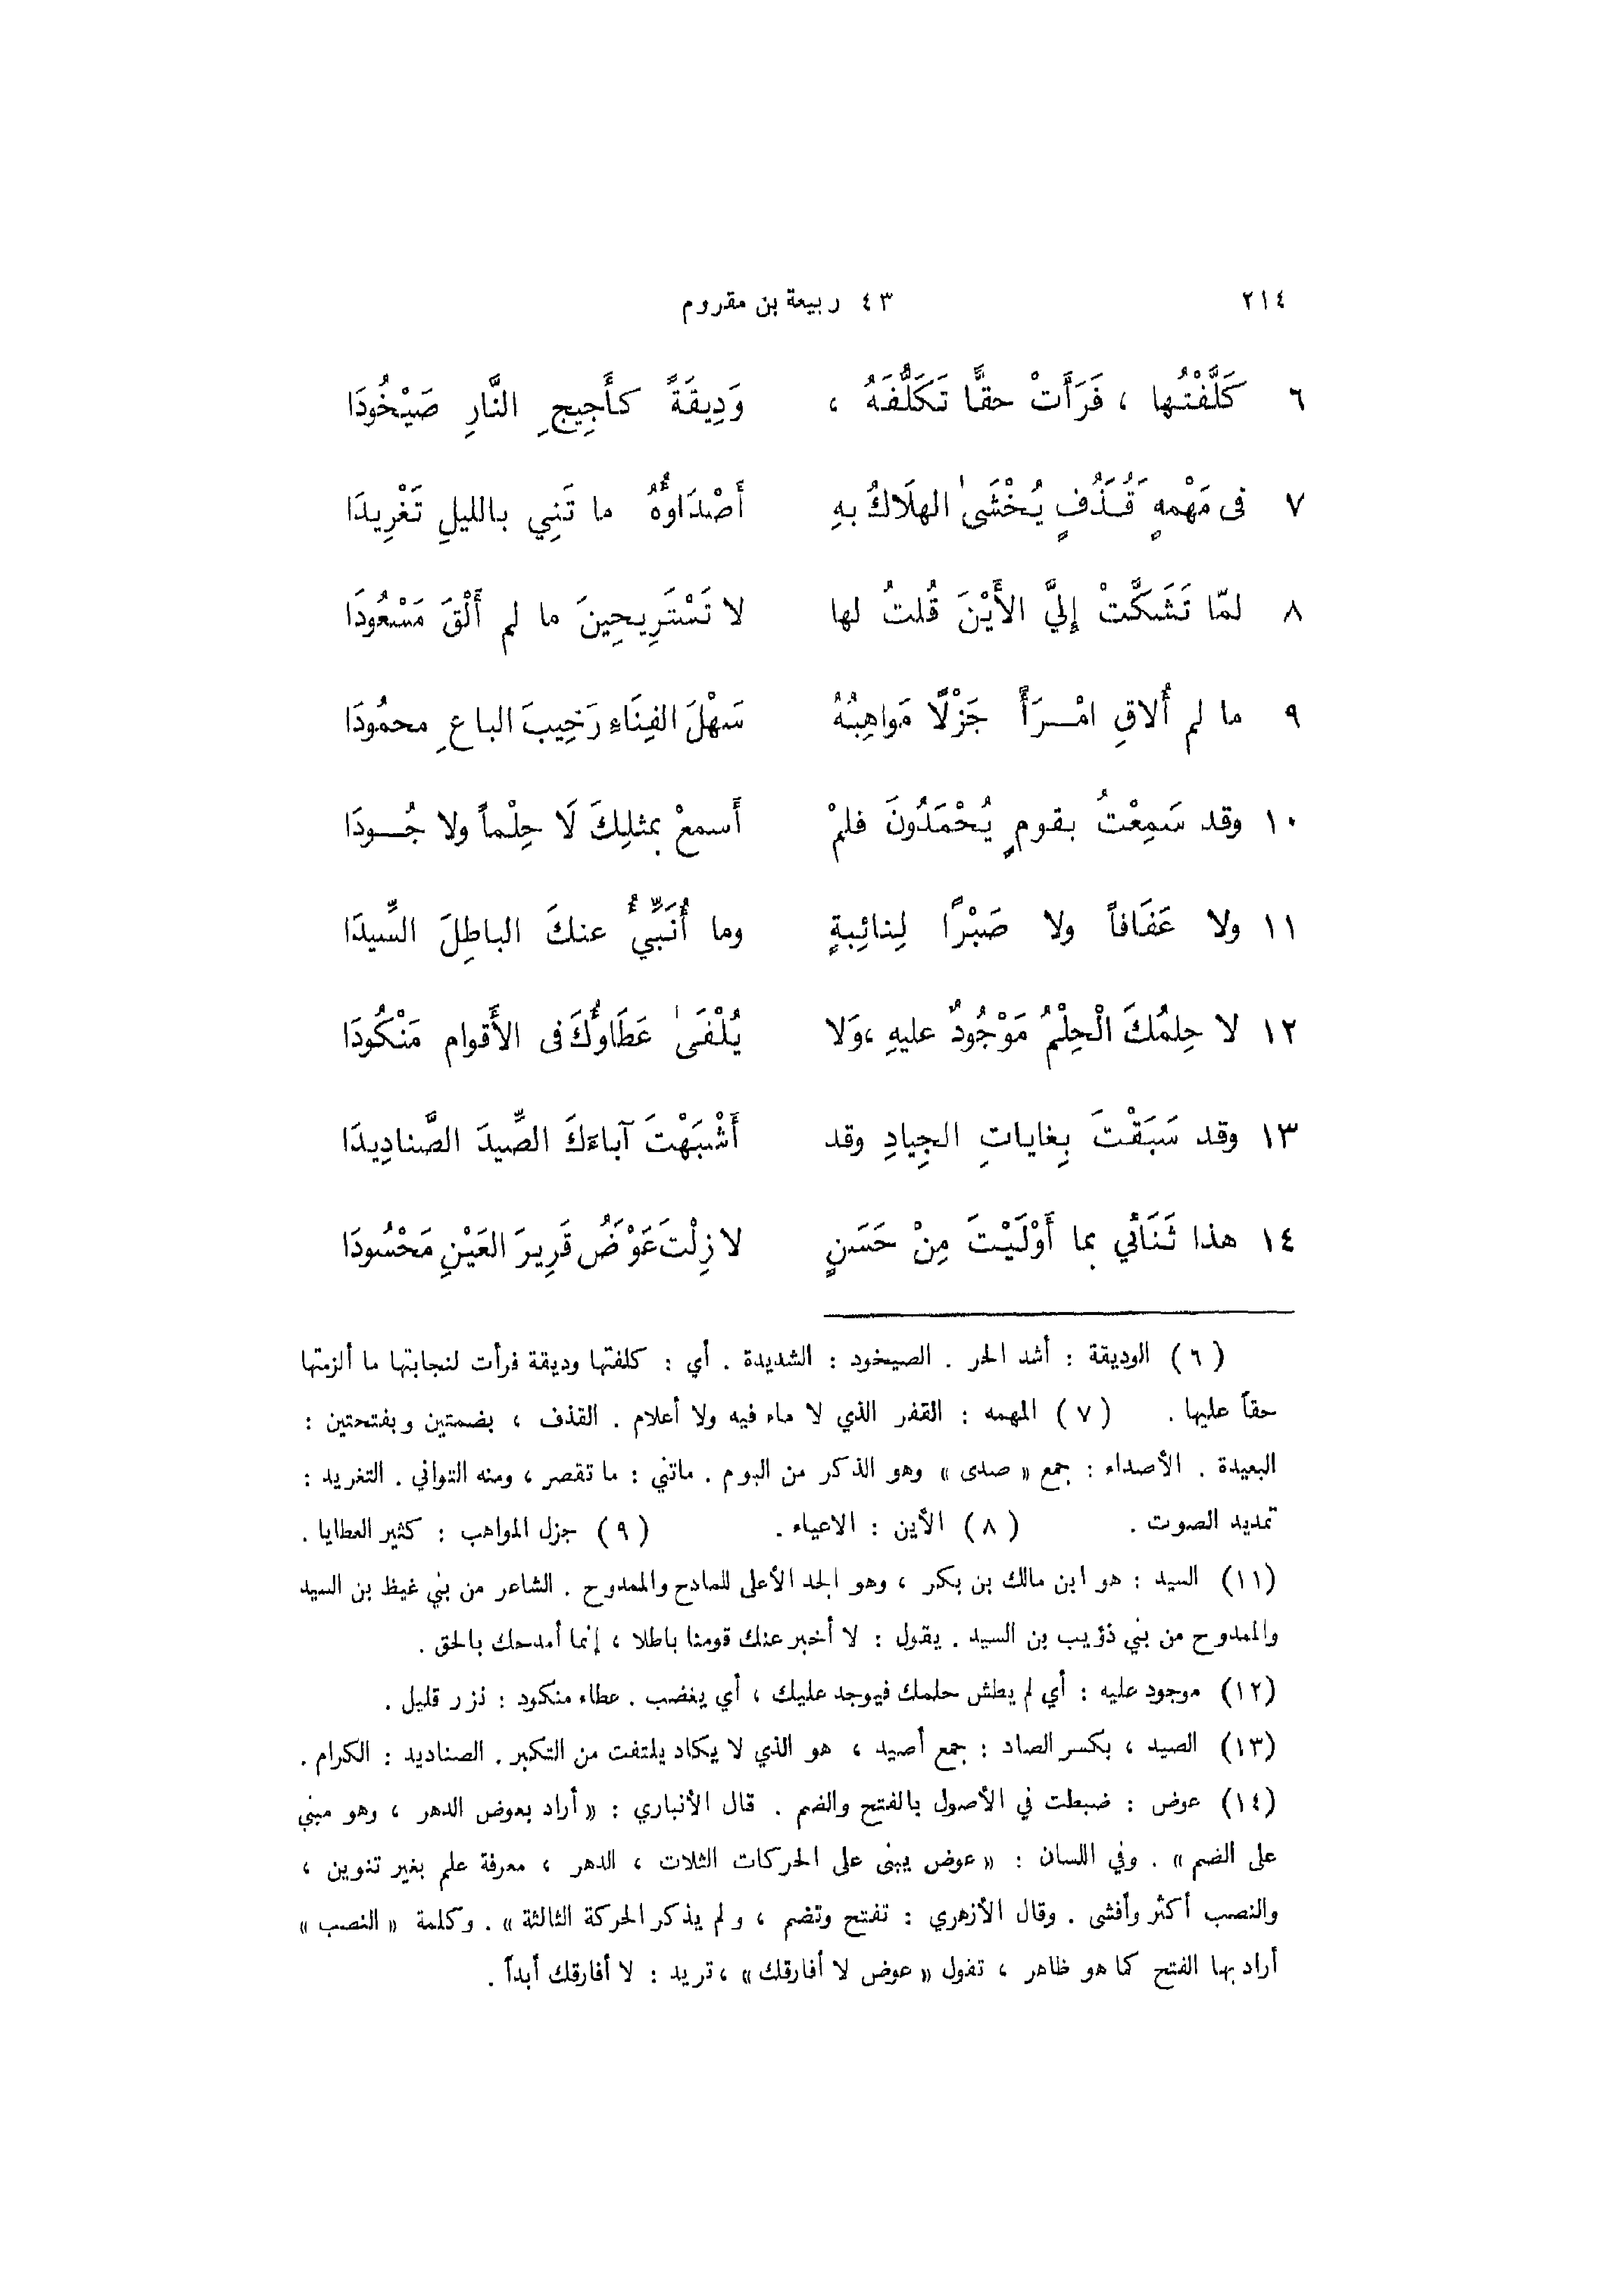 ٢١٤ ٤٣ ربيعة بن مقروم
٦ كَلَّفْتُها ، فَرَأَتْ حقًّا تَكَلُّفَهُ ، وَدِيقَةً كأَجِيجِ النَّارِ صَيْخُودَا
٧ فى مَهْمهٍ قُذُفٍ يُخْشَىٰ الهلَاكُ بهِ أَصْدَاوُهُ ما تَنِي بالليلِ تَغْرِيدَا
٨ لمّا تَشَكَّتْ إِليَّ الأَيْنَ قُلتُ لها لا تَسْتَرِيحِينَ ما لم أَلْقَ مَسْعُودَا
٩ ما لم أُلاقِ امْرَأً جَزْلًا مَواهِبُهُ سَهْلَ الفِنَاءِ رَخِيبَ الباعِ محمُودَا
١٠ وقد سَمِعْتُ بقومٍ يُحْمَدُونَ فلمْ أَسمعْ بمثلِكَ لَا حِلْماً ولا جُودَا
١١ ولا عَفَافاً ولا صَبْرًا لِنائِبةٍ وما أُنَبِّئُ عنكَ الباطِلَ السِّيدَا
١٢ لا حِلمُكَ الْحِلْمُ مَوْجُودٌ عليهِ ،وَلا يُلْفَىٰ عَطَاوُّكَ فى الأَقوام مَنْكُودَا
١٣ وقد سَبَقْتَ بِغاياتِ الجِيادِ وقد أَشْبَهْتَ آباءَكَ الصِّيدَ الصَّنادِيدَا
١٤ هذا ثَنَائي بما أَوْلَيْتَ مِنْ حَسَنٍ لا زِلْتَ عَوْضَُ قَرِيرَ العَيْنِ مَحْسُودَا
( ٦ ) الوديقة : أشد الحر . الصيخود : الشديدة . أي : كلفتها وديقة فرأت لنجابتها ما ألزمتها
حقاً عليها . ( ٧ ) المهمه : القفر الذي لا ماء فيه ولا أعلام . القذف ، بضمتين وبفتحتين :
البعيدة . الأصداء : جمع « صدى » وهو الذكر من البوم . ماتني : ما تقصر ، ومنه التواني . التغريد :
تمديد الصوت . ( ٨ ) الأين : الاعياء . ( ٩ ) جزل المواهب : كثير العطايا .
(١١) السيد : هو ابن مالك بن بكر ، وهو الجد الأعلى للمادح والممدوح . الشاعر من بني غيظ بن السيد
والممدوح من بني ذؤيب بن السيد . يقول : لا أخبر عنك قومنا باطلا ، إنما أمدحك بالحق .
(١٢) موجود عليه : أي لم يطش حلمك فيوجد عليك ، أي يغضب . عطاء منكود : نزر قليل .
(١٣) الصيد ، بكسر الصاد : جمع أصيد ، هو الذي لا يكاد يلتفت من التكبر . الصناديد : الكرام .
(١٤) عوض : ضبطت في الأصول بالفتح والضم . قال الأنباري : « أراد بعوض الدهر ، وهو مبني
على الضم » . وفي اللسان : « عوض يبنى على الحركات الثلاث ، الدهر ، معرفة علم بغير تنوين ،
والنصب أكثر وأفشى . وقال الأزهري : تفتح وتضم ، ولم يذكر الحركة الثالثة » . وكلمة « النصب »
أراد بها الفتح كما هو ظاهر ، تقول « عوض لا أفارقك » ، تريد : لا أفارقك أبداً .